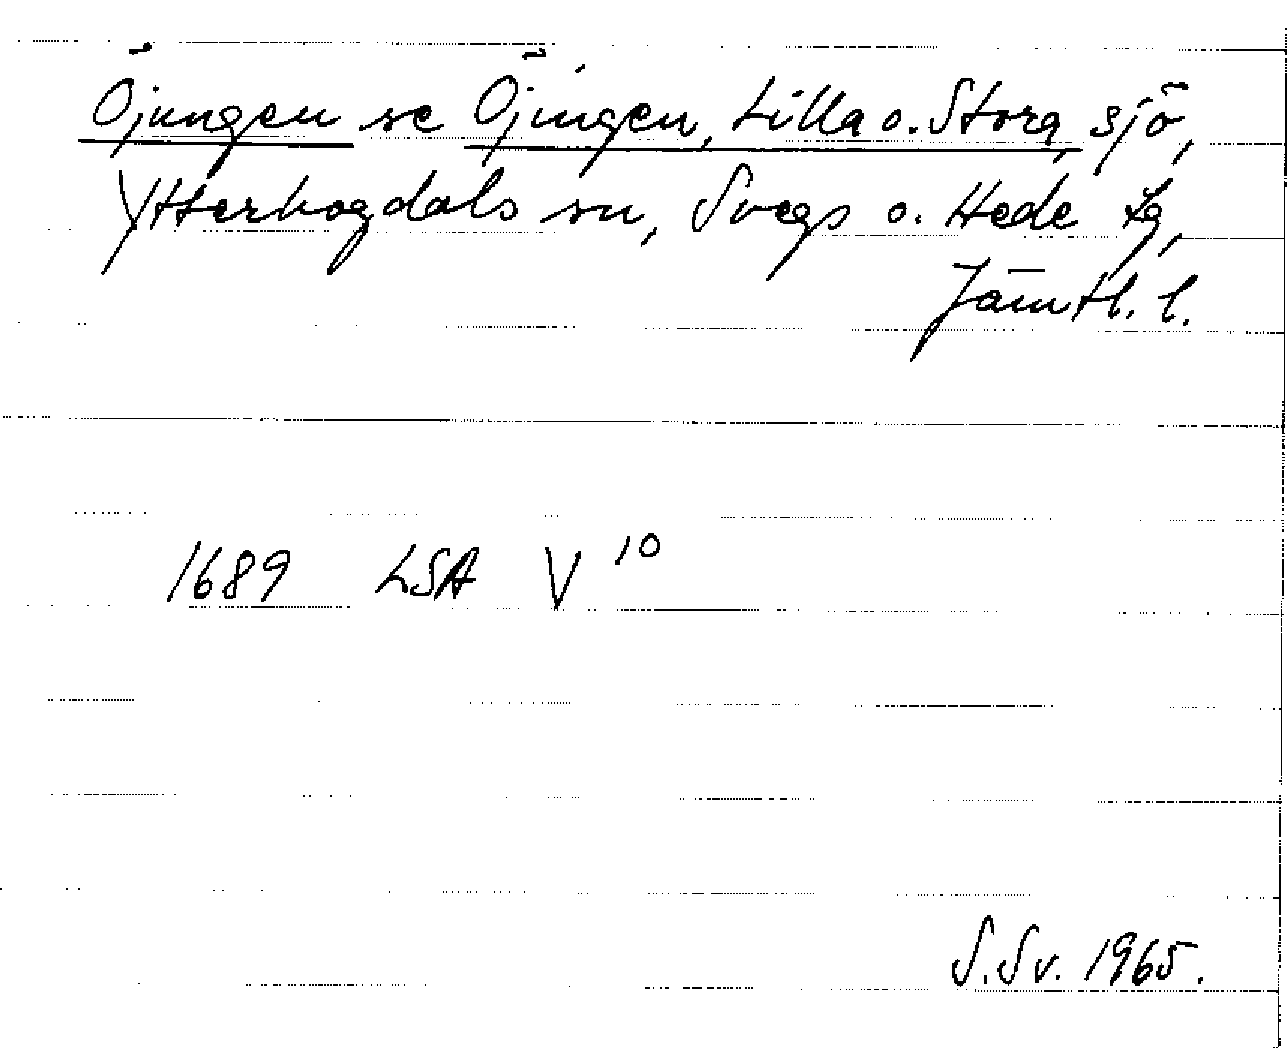 Öjungen se Öjingen, Lilla o. Stora, sjö,
Ytterhogdals sn, Svegs o. Hede tg,
Jämtl. l.
1689 LSA V 10
S. Sv. 1965.